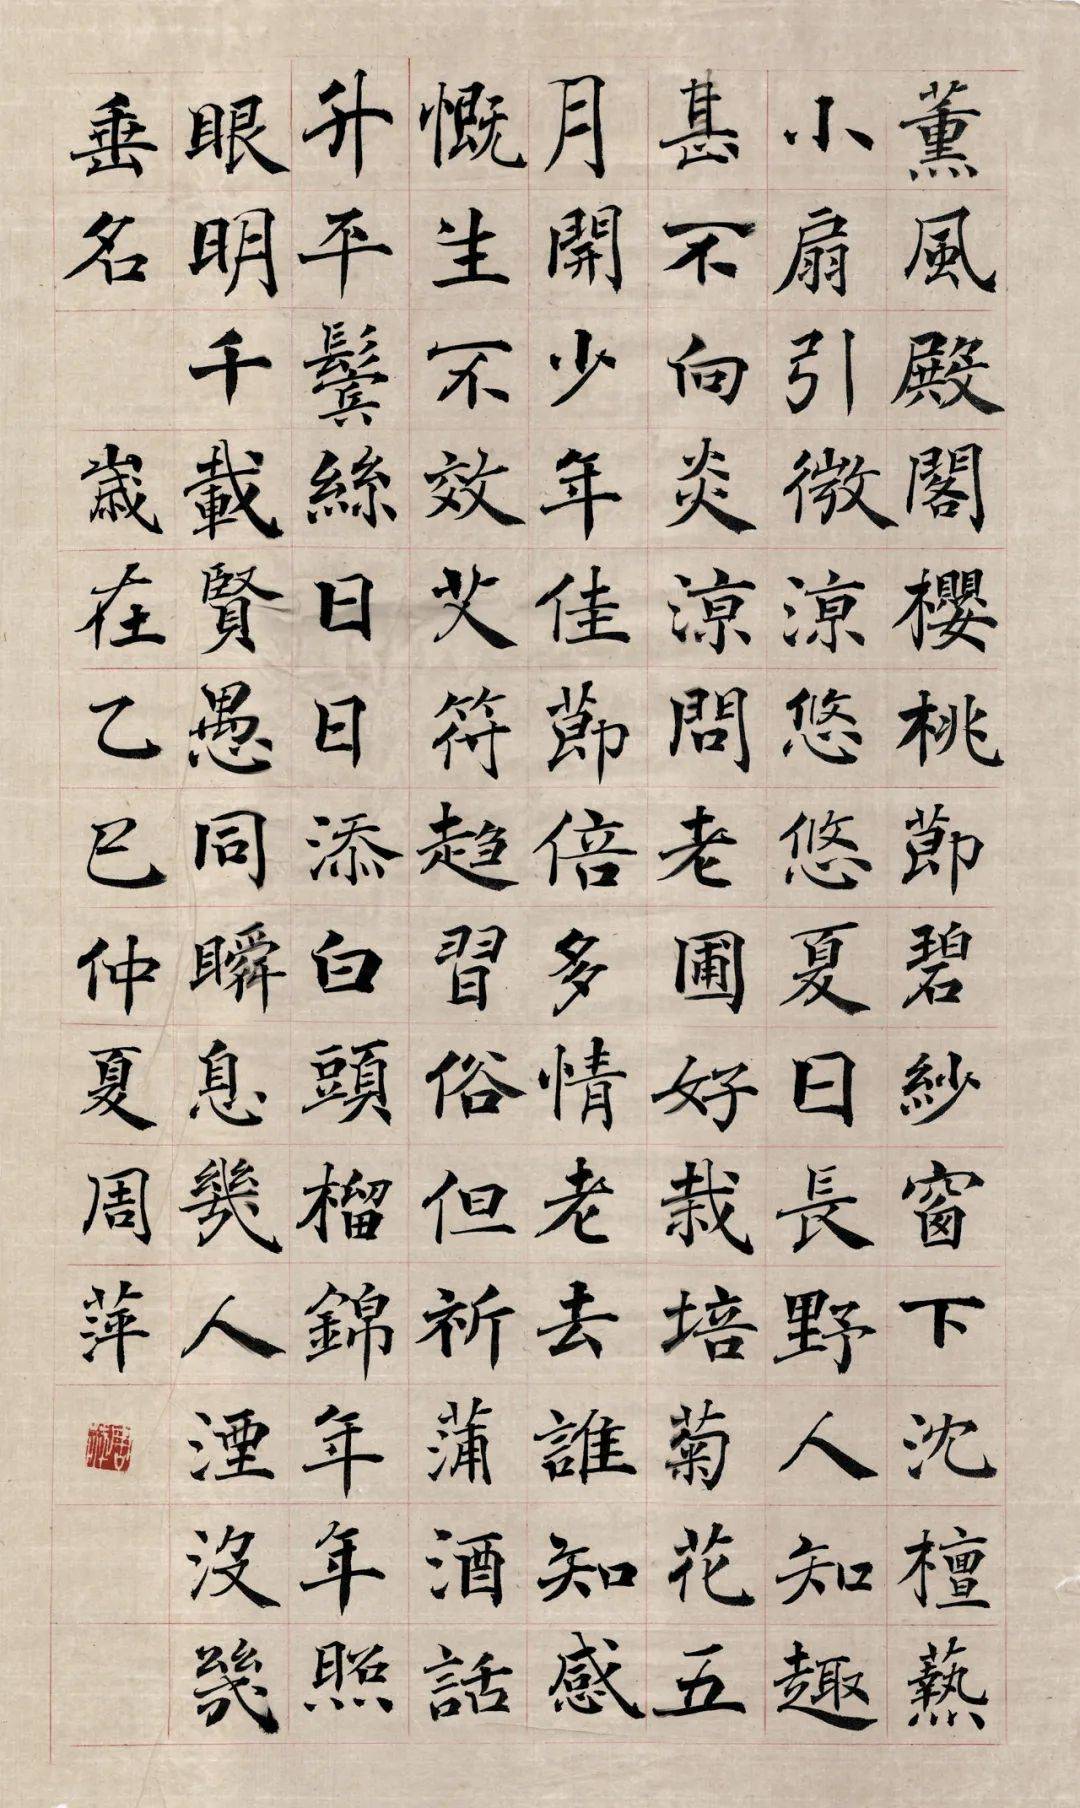 薰風殿閣櫻桃莭碧紗窗下沈檀爇
小扇引微涼悠悠夏日長野人知趣
甚不向炎涼問老圃好栽培菊花五
月開少年佳莭倍多情老去誰知感
慨生不效艾符趨習俗但祈蒲酒話
升平鬢絲日日添白頭榴錦年年照
眼明千載賢愚同瞬息幾人湮沒幾
垂名
歲在乙巳仲夏周萍